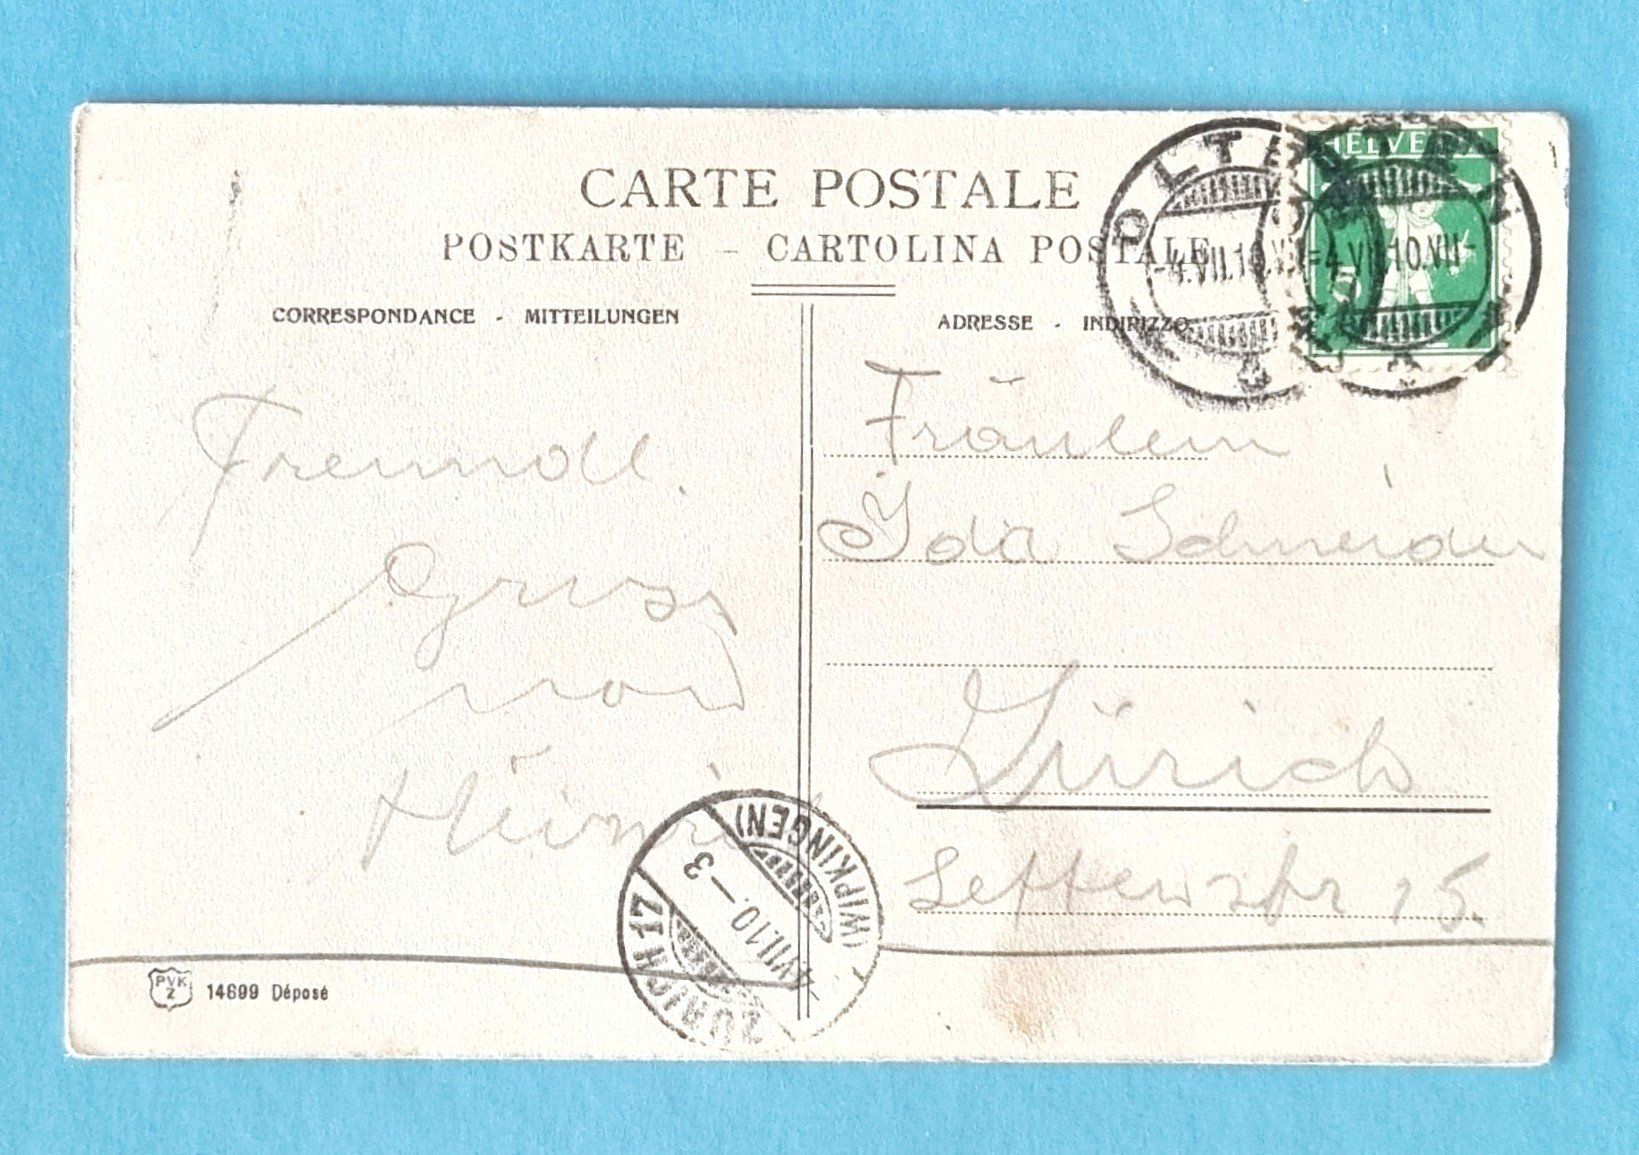 CARTE POSTALE
POSTKARTE - CARTOLINA POSTALE
CORRESPONDANCE - MITTEILUNGEN
ADRESSE - INDIRIZZO
HELVETIA
5
OLTEN
-4.VII.10.VII-
OLTEN
-4.VII.10.VII-
Freundl.
Gruss
von
Heinrich
Fräulein
Ida Schneider
Zürich
Lettenstr 15.
ZÜRICH 17
(WIPKINGEN)
-4.VII.10.-3
PVK
Z
14699 Déposé